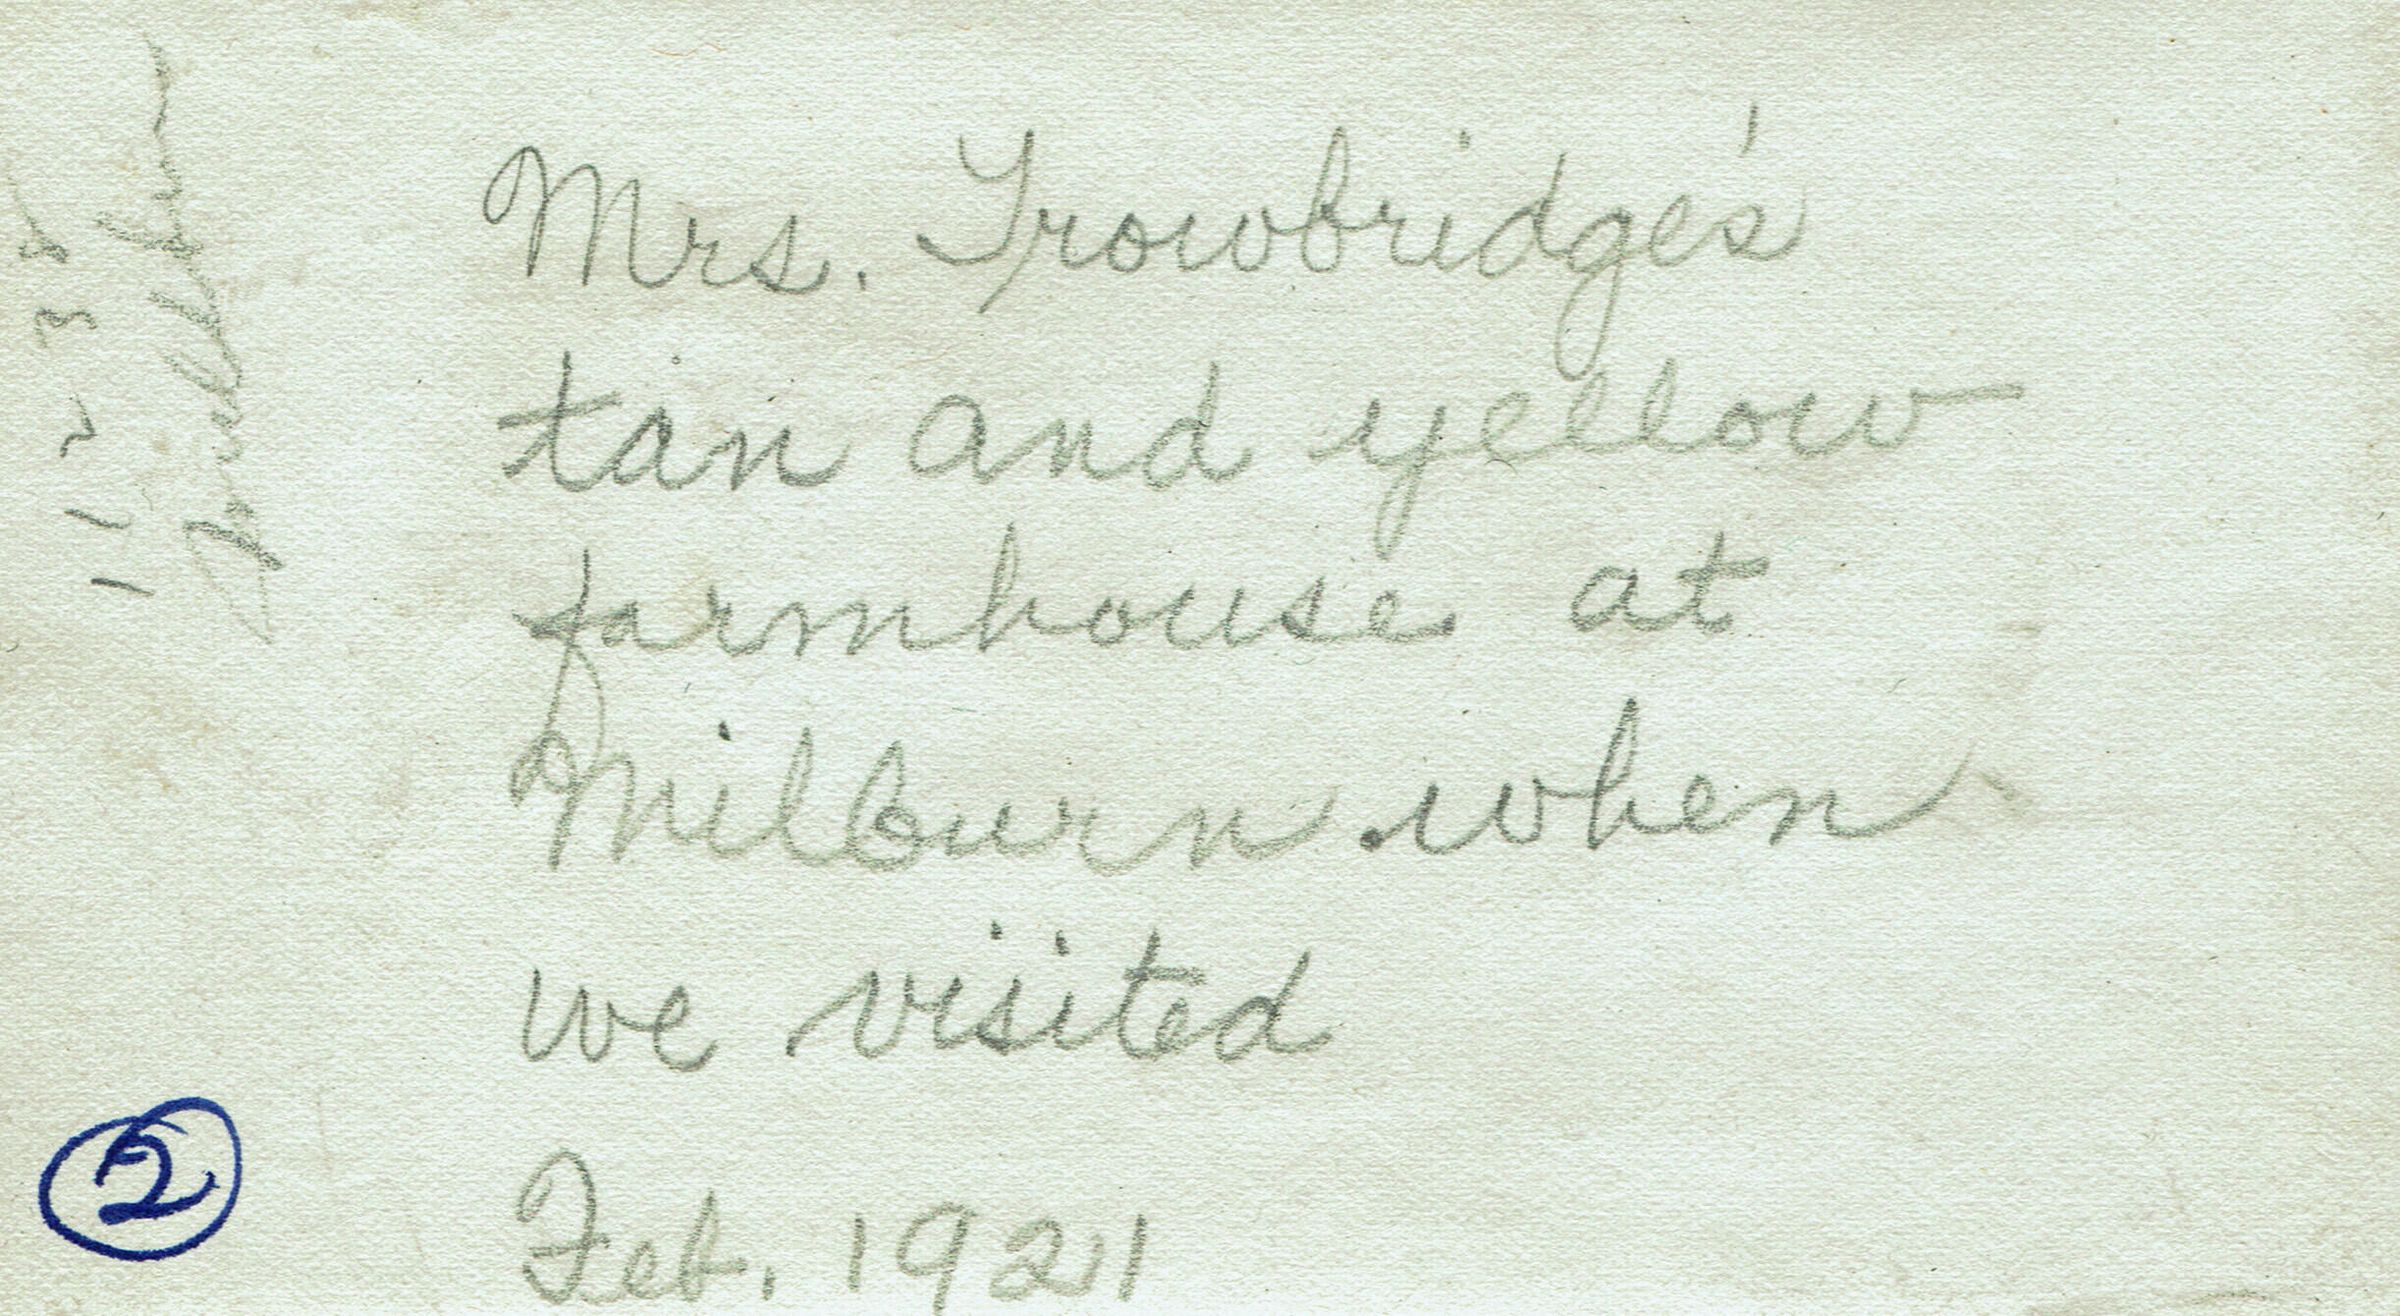 Mrs. Trowbridge's
tan and yellow
farmhouse at
Milburn when
we visited
Feb. 1921
2